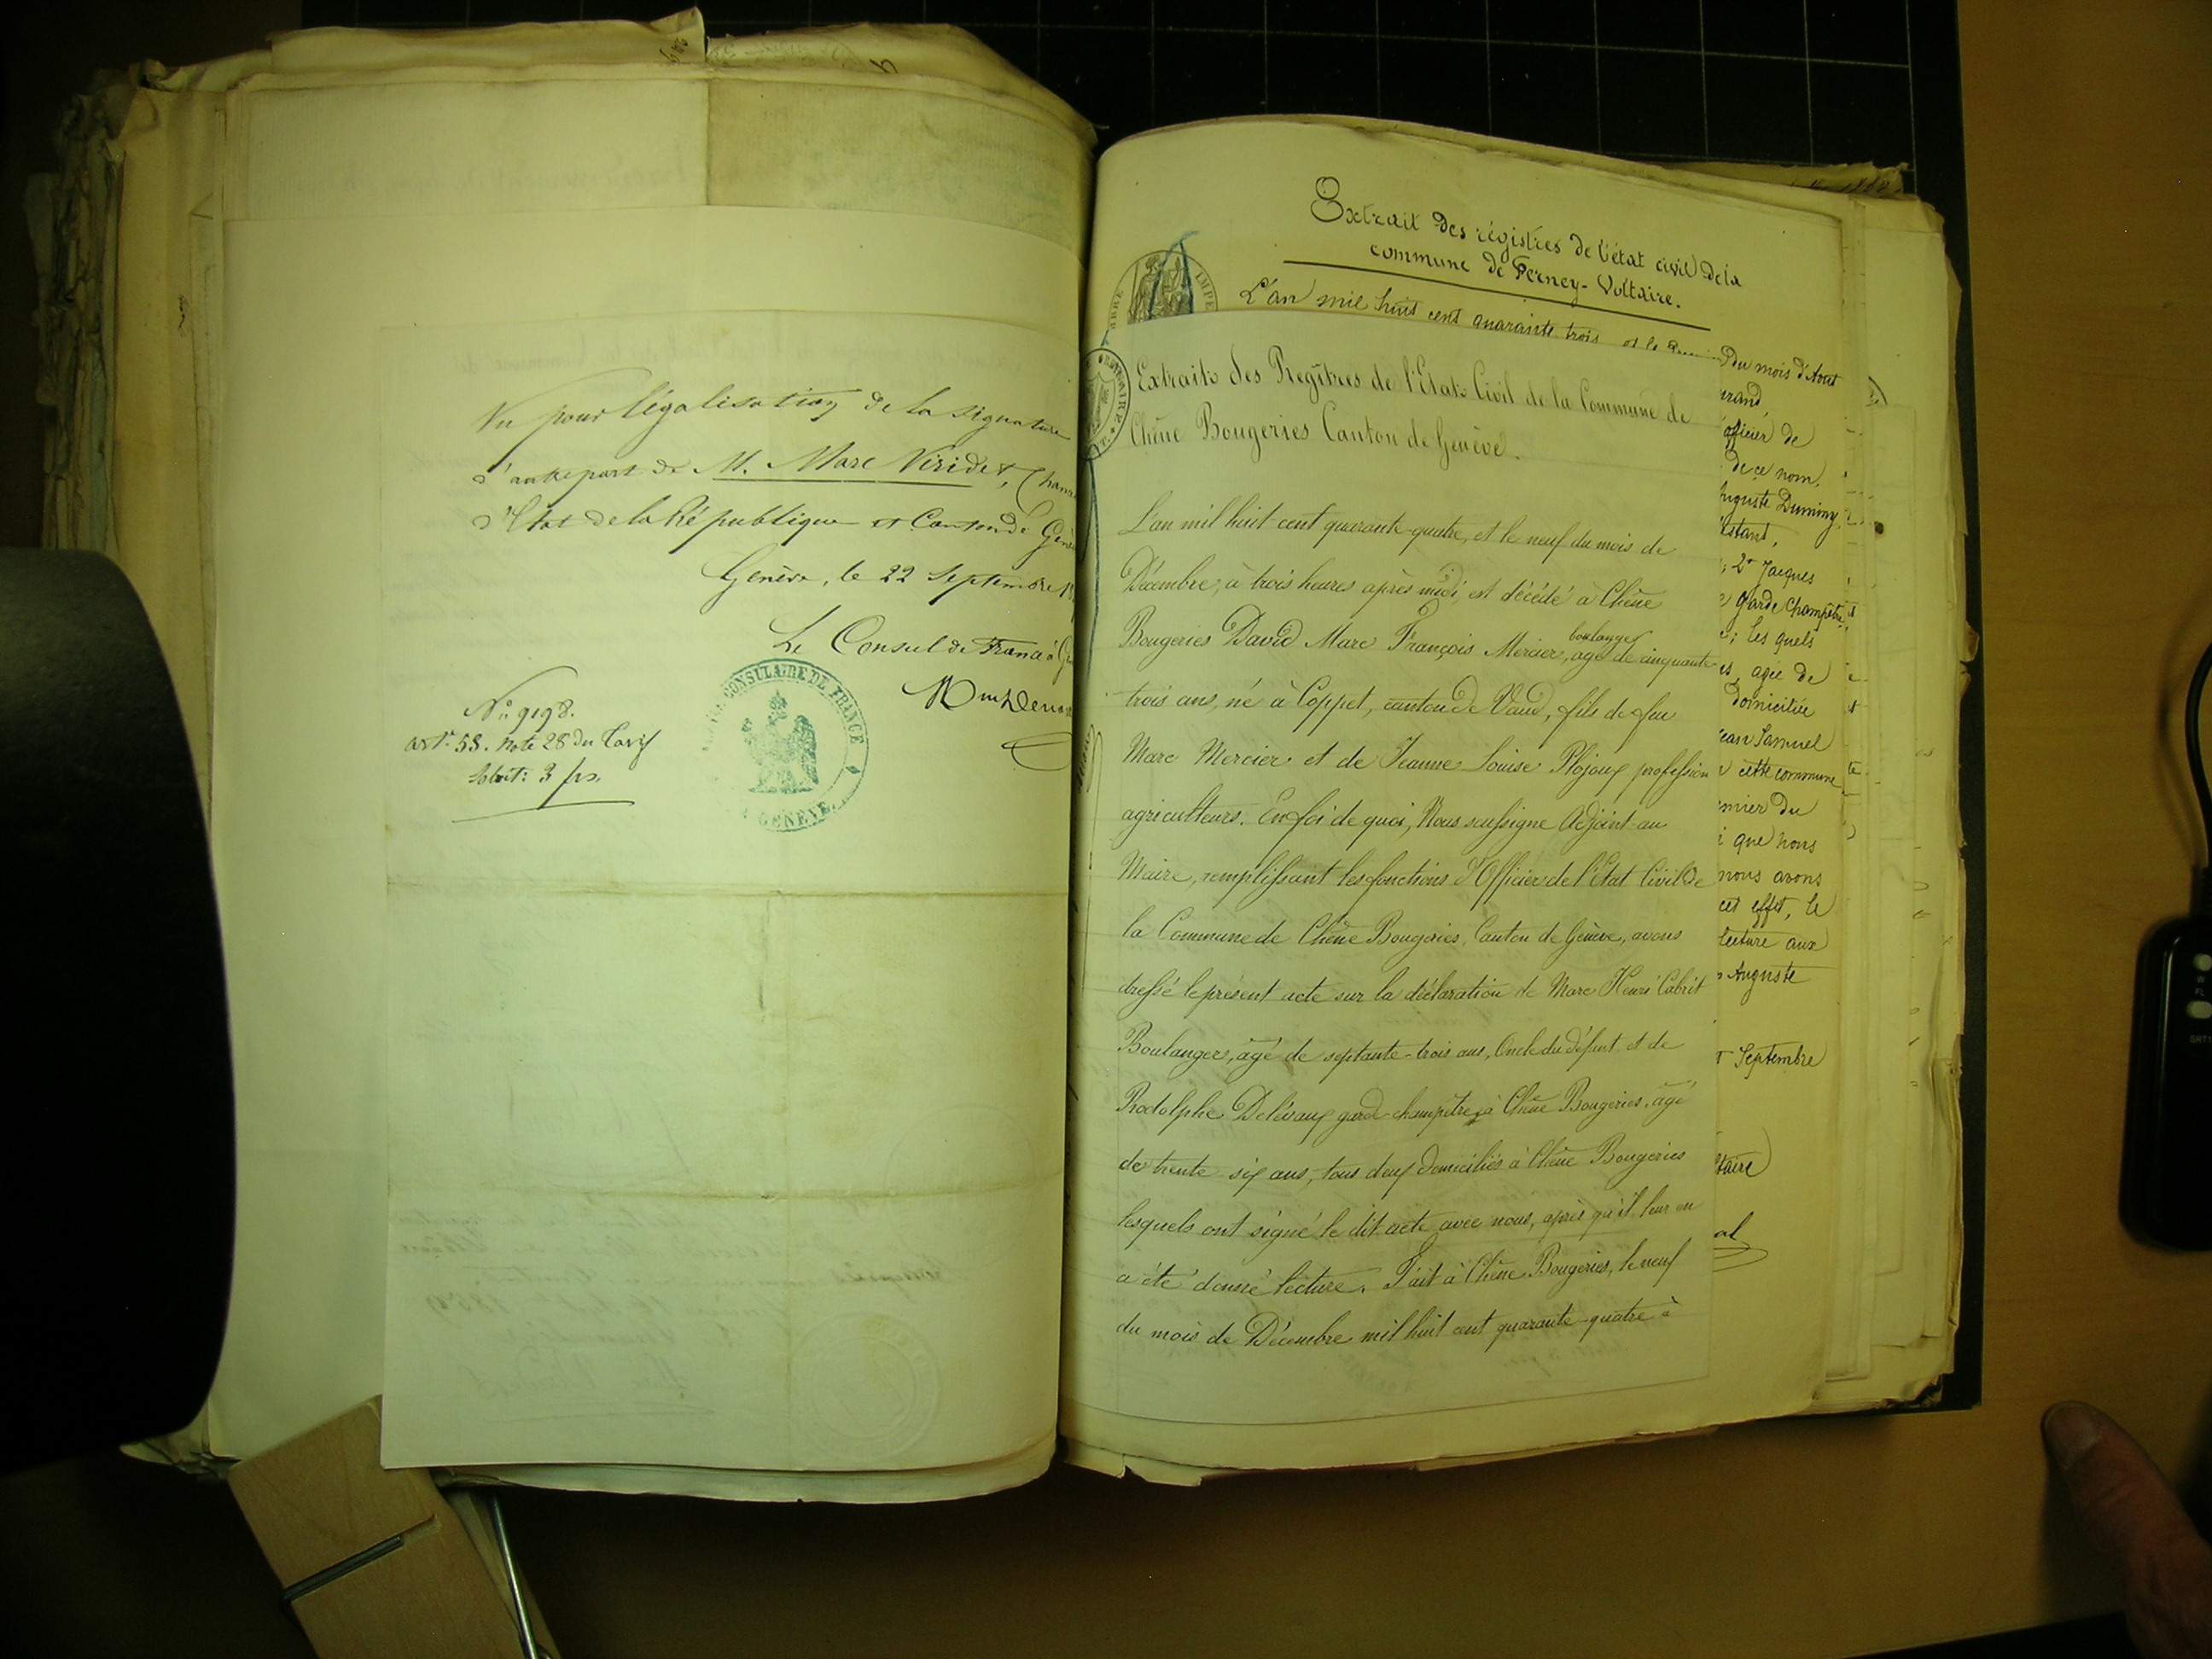 Vu pour légalisation de la signature
d'autre part de M. Marc Viridet,
d'Etat de la République et Canton de
Genève, le 22 Septembre
Le Consul de France à
No 9198.
art. 58. note 28 du Tarif
3 frs.
CONSULAIRE DE FRANCE
GENÈVE
Extrait des régistres de l'état civil de la
commune de Ferney-Voltaire.
L'an mil huit cent quarante trois et le
Extraits des Regîtres de l'Etat Civil de la Commune de
Chêne Bougeries Canton de Genève.
L'an mil huit cent quarante-quatre, et le neuf du mois de
Décembre, à trois heures après midi, est décédé à Chêne
Bougeries David Marc François Mercier, boulanger, agé de cinquante
trois ans, né à Coppet, canton de Vaud, fils de feu
Marc Mercier et de Jeanne Louise Plojoux profession
agriculteurs. En foi de quoi, Nous soussigné Adjoint au
Maire, remplissant les fonctions d'Officier de l'Etat Civil de
la Commune de Chêne Bougeries, Canton de Genève, avons
dressé le présent acte sur la déclaration de Marc Henri Cabrit
Boulanger, âgé de septante-trois ans, Oncle du défunt et de
Rodolphe Delévaux garde-champêtre à Chêne Bougeries, âgé
de trente six ans, tous deux domiciliés à Chêne Bougeries
lesquels ont signé le dit acte avec nous, après qu'il leur en
a été donné lecture. Fait à Chêne Bougeries, le neuf
du mois de Décembre mil huit cent quarante-quatre à
du mois d'Aout
officier de
de ce nom,
Auguste Duminy
2° Jacques
garde Champêtre
les quels
agée de
domiciliée
Jean Samuel
cette commune
du
que nous
nous avons
cet effet, le
lecture aux
Auguste
Septembre